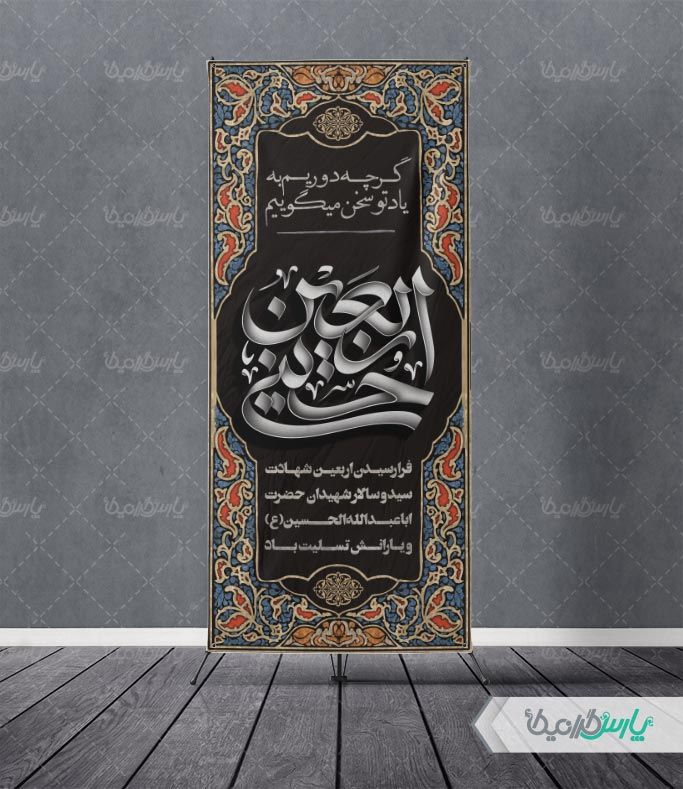 گرچه دوریم به
یاد تو سخن میگوییم
اربعین
حسینی
فرا رسیدن اربعین شهادت
سید و سالار شهیدان حضرت
ابا عبدالله الحسین (ع)
و یارانش تسلیت باد
پارس گرافیک